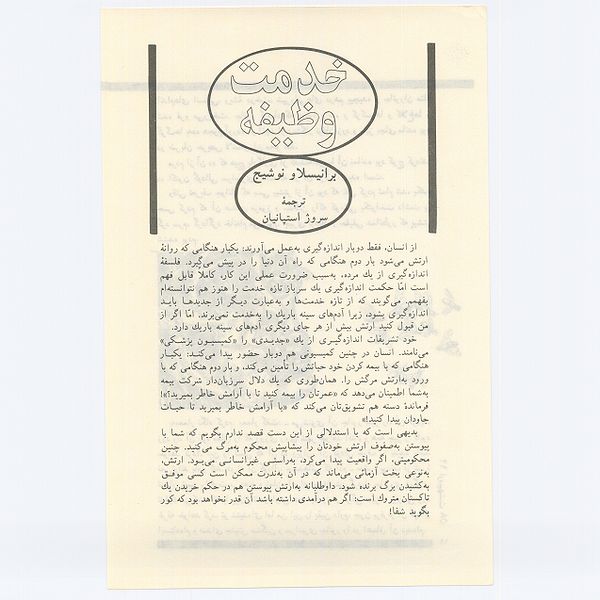 خدمت
وظیفه
برانیسلاو نوشیج
ترجمهٔ
سروژ استپانیان
از انسان، فقط دوبار اندازه‌گیری به‌عمل می‌آورند: یکبار هنگامی که روانهٔ
ارتش می‌شود بار دوم هنگامی که راه آن دنیا را در پیش می‌گیرد. فلسفهٔ
اندازه‌گیری از یك مرده، به‌سبب ضرورت عملی این کار، کاملاً قابل فهم
است امّا حکمت اندازه‌گیری یك سرباز تازه خدمت را هنوز هم نتوانسته‌ام
بفهمم. می‌گویند که از تازه خدمت‌ها و به‌عبارت دیگر از جدیدها باید
اندازه‌گیری بشود، زیرا آدم‌های سینه باریك را به‌خدمت نمی‌برند. امّا اگر از
من قبول کنید ارتش بیش از هر جای دیگری آدم‌های سینه باریك دارد.
خود تشریفات اندازه‌گیری از یك «جدیدی» را «کمیسیون پزشکی»
می‌نامند. انسان در چنین کمیسیونی هم دوبار حضور پیدا می‌کند: یکبار
هنگامی که با بیمه کردن خود حیاتش را تأمین می‌کند، و بار دوم هنگامی که با
ورود به‌ارتش مرگش را. همان‌طوری که یك دلال سرزبان‌دار شرکت بیمه
به‌شما اطمینان می‌دهد که «عمرتان را بیمه کنید تا با آرامش خاطر بمیرید!»!
فرماندهٔ دسته هم تشویق‌تان می‌کند که «با آرامش خاطر بمیرید تا حیات
جاودان پیدا کنید!»
بدیهی است که با استدلالی از این دست قصد ندارم بگویم که شما با
پیوستن به‌صفوف ارتش خودتان را پیشاپیش محکوم به‌مرگ می‌کنید. چنین
محکومیتی، اگر واقعیت پیدا می‌کرد، به‌راستی غیرانسانی می‌بود. ارتش،
به‌نوعی بخت آزمائی می‌ماند که در آن به‌ندرت ممکن است کسی موفق
به‌کشیدن برگ برنده شود. داوطلبانه به‌ارتش پیوستن هم در حکم خریدن یك
تاکستان متروك است: اگر هم درآمدی داشته باشد آن قدر نخواهد بود که کور
بگوید شفا!